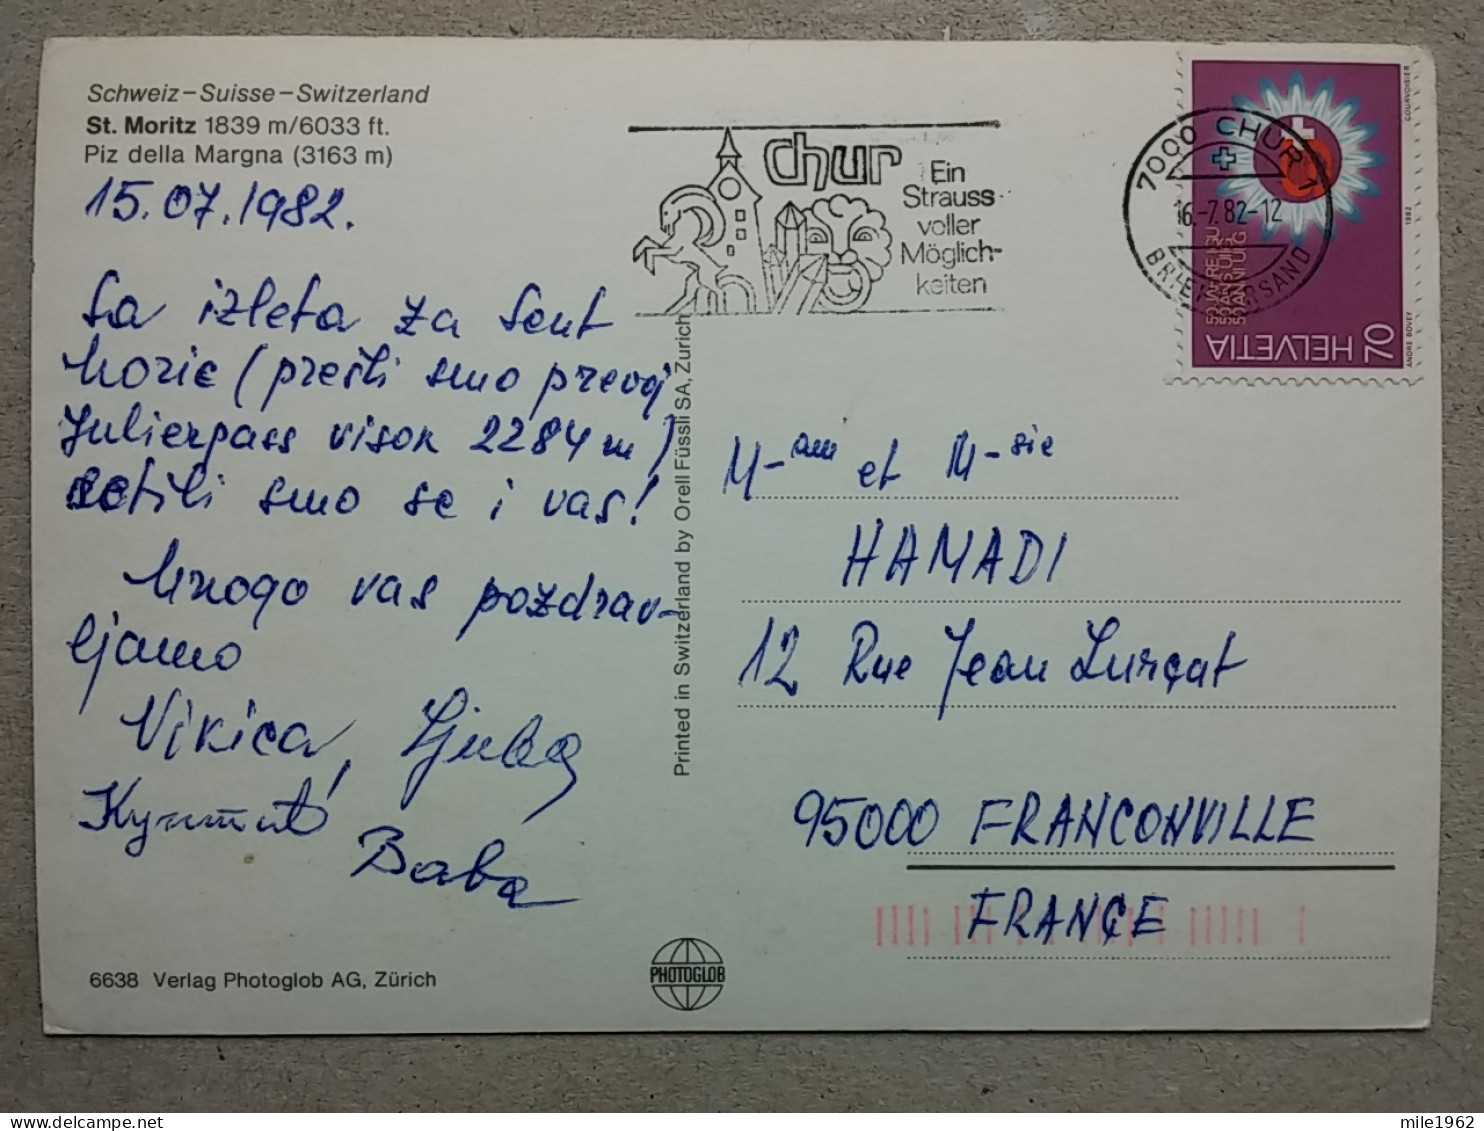 Schweiz–Suisse–Switzerland
St. Moritz 1839 m/6033 ft.
Piz della Margna (3163 m)
15.07.1982.
Sa izleta za Sent
Moric (prešli smo prevoj
Julierpass visok 2284 m)
setili smo se i vas!
Mnogo vas pozdrav-
ljamo
Vikica, Ljuba
Baba
6638 Verlag Photoglob AG, Zürich
Printed in Switzerland by Orell Füssli SA, Zürich
PHOTOGLOB
chur
Ein
Strauss
voller
Möglich-
keiten
7000 CHUR 1
16.-7.82-12
BRIEFVERSAND
HELVETIA 70
COURVOISIER
1982
ANDRE BOVEY
M-am et M-sie
HAMADI
12 Rue Jean Lurçat
95000 FRANCONVILLE
FRANÇE
mile1962